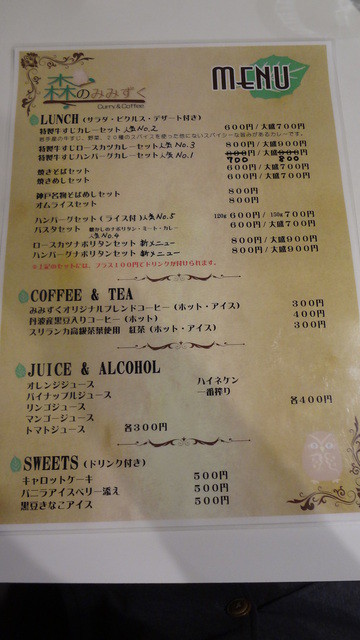 森のみみずく
Curry & Coffee
MENU
LUNCH (サラダ・ピクルス・デザート付き)
特製牛すじカレーセット 人気No.2 600円/大盛700円
特製牛すじロースカツカレーセット 人気No.3 800円/大盛900円
特製牛すじハンバーグカレーセット 人気No.1 700 800
焼きそばセット 600円/大盛700円
焼きめしセット 600円/大盛700円
神戸名物そばめしセット 800円
オムライスセット 800円
ハンバーグセット (ライス付) 人気No.5 120g 600円/ 150g 700円
パスタセット 懐かしのナポリタン・ミート・カレー 600円/大盛700円
人気No.4
ロースカツナポリタンセット 新メニュー 800円/大盛900円
ハンバーグナポリタンセット 新メニュー 800円/大盛900円
※上記のセットには、プラス100円でドリンクが付けられます。
COFFEE & TEA
みみずくオリジナルブレンドコーヒー (ホット・アイス) 300円
丹波産黒豆入りコーヒー (ホット) 400円
スリランカ高級茶葉使用 紅茶 (ホット・アイス) 300円
JUICE & ALCOHOL
オレンジジュース ハイネケン
パイナップルジュース 一番搾り
リンゴジュース 各400円
マンゴージュース
トマトジュース 各300円
SWEETS (ドリンク付き)
キャロットケーキ 500円
バニラアイスベリー添え 500円
黒豆きなこアイス 500円